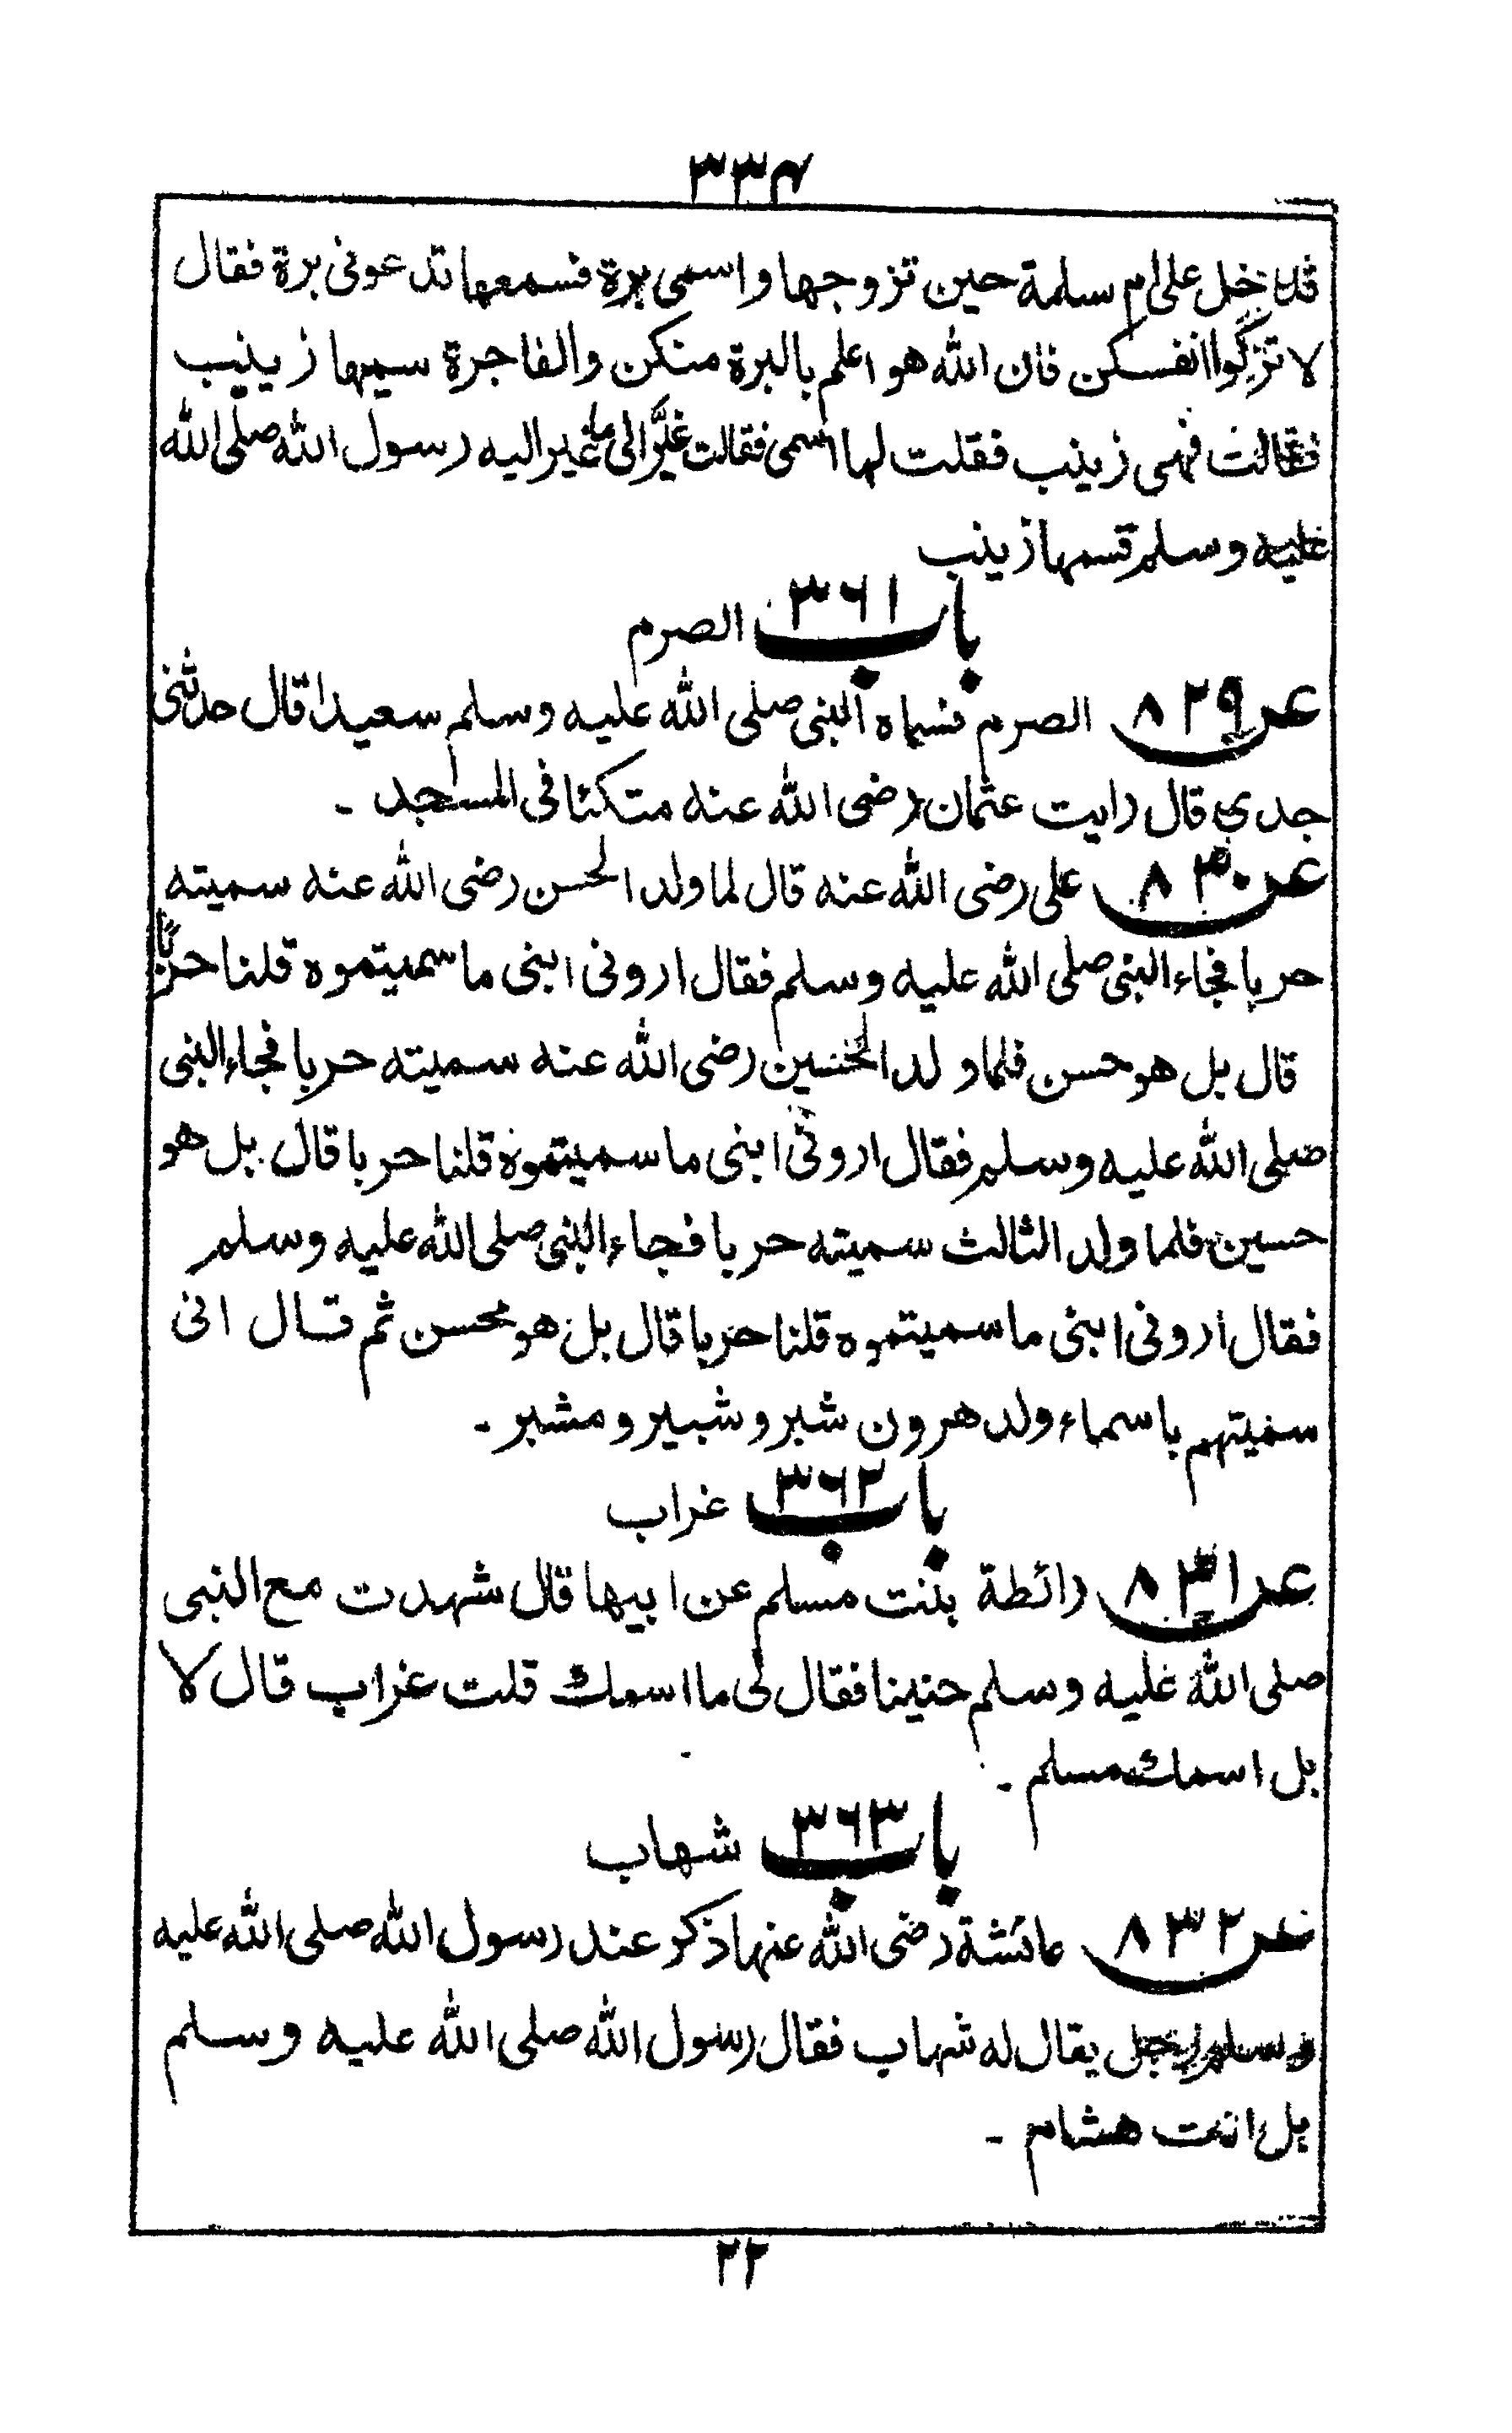 ٣٣٧
فدخل على ام سلمة حين تزوجها واسمى برة فسمعها تدعونى برة فقال
لا تزكوا انفسكن فان الله هو اعلم بالبرة منكن والفاجرة سميها زينب
فقالت فهى زينب فقلت لها اسمى فقالت غيّر الى ما غير اليه رسول الله صلى الله
عليه وسلم فسمها زينب
باب ٣٦١ الصرم
عن ٨٢٩ الصرم فسماه النبى صلى الله عليه وسلم سعيدا قال حدثنى
جدى قال رايت عثمان رضى الله عنه متكئا فى المسجد ـ
عن ٨٣٠ على رضى الله عنه قال لما ولد الحسن رضى الله عنه سميته
حربا فجاء النبى صلى الله عليه وسلم فقال ارونى ابنى ما سميتموه قلنا حربًا
قال بل هو حسن فلما ولد الحسين رضى الله عنه سميته حربا فجاء النبى
صلى الله عليه وسلم فقال ارونى ابنى ما سميتموه قلنا حربا قال بل هو
حسين فلما ولد الثالث سميته حربا فجاء النبى صلى الله عليه وسلم
فقال ارونى ابنى ما سميتموه قلنا حربا قال بل هو محسن ثم قال انى
سميتهم باسماء ولد هرون شبر و شبير و مشبر ـ
باب ٣٦٢ غراب
عن ٨٣١ رائطة بنت مسلم عن ابيها قال شهدت مع النبى
صلى الله عليه وسلم حنينا فقال لى ما اسمك قلت غراب قال لا
بل اسمك مسلم ـ
باب ٣٦٣ شهاب
عن ٨٣٢ عائشة رضى الله عنها ذكر عند رسول الله صلى الله عليه
وسلم رجل يقال له شهاب فقال رسول الله صلى الله عليه وسلم
بل انت هشام ـ
٢٢